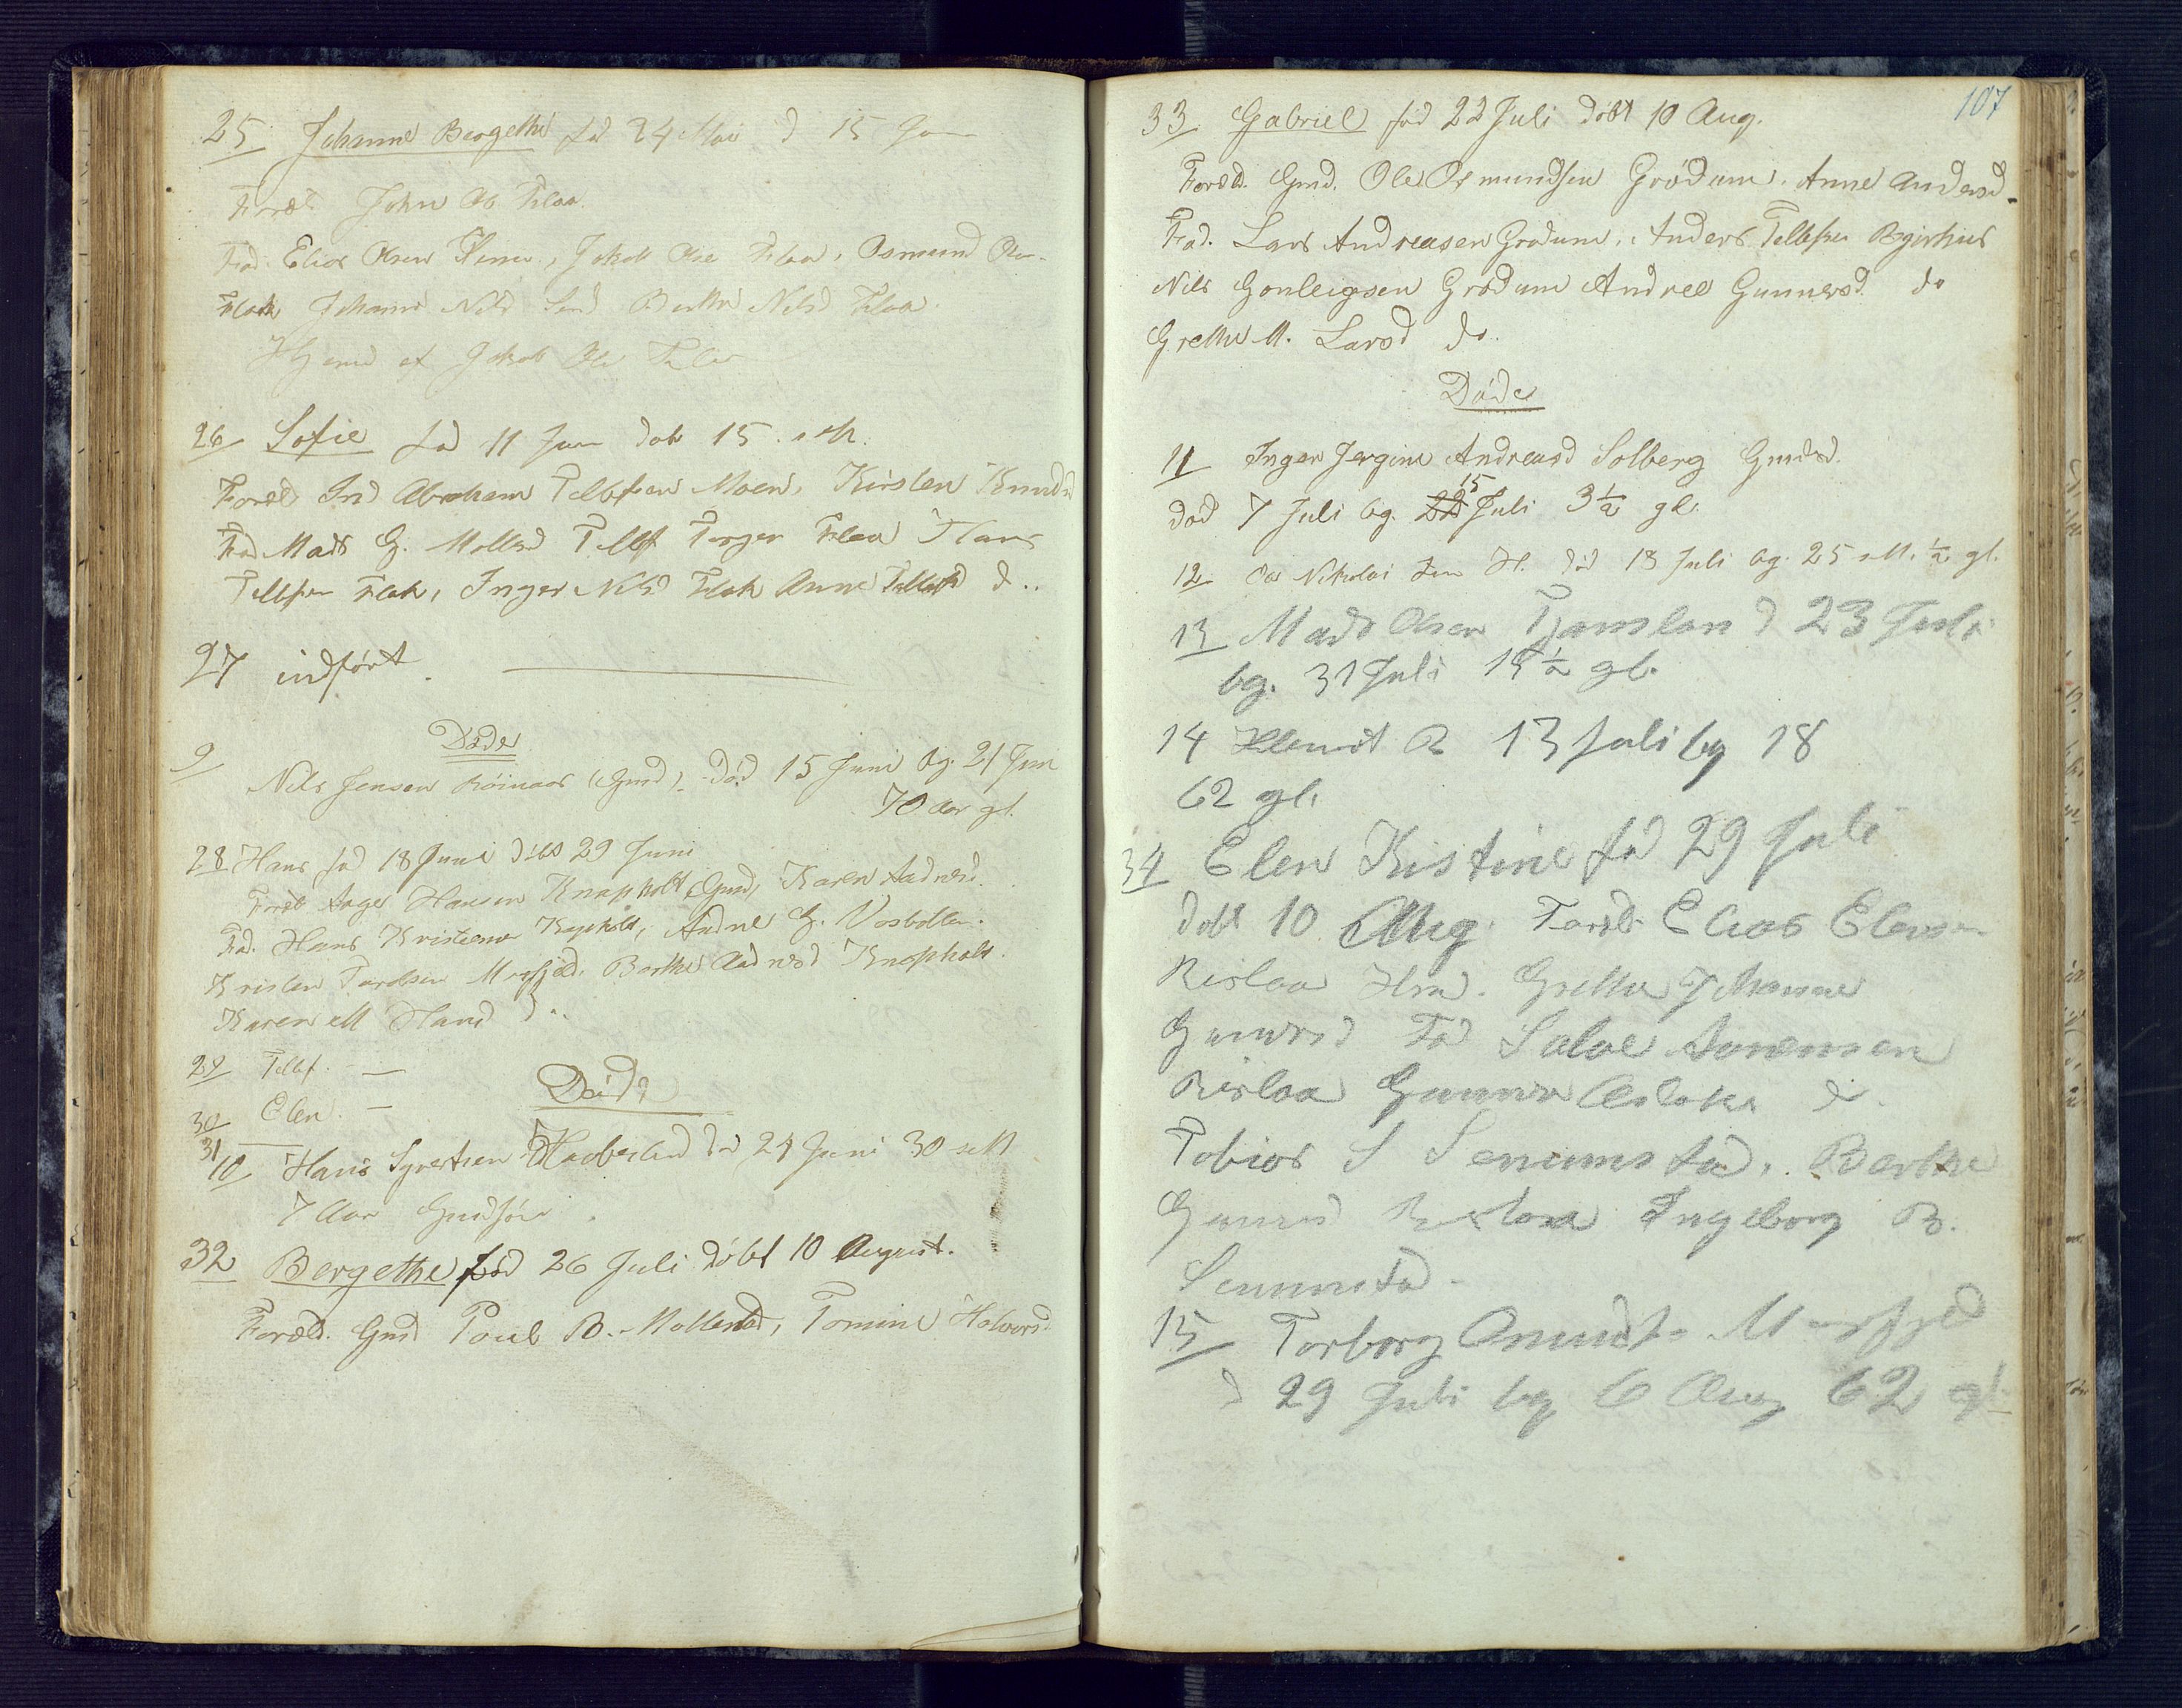 25 Johanne Bergethe fød 24 Mai d 15 Jun
Foræld John Ols Flaa
Fad. Elias Olsen, Jakob Ols Flaa, Osmund Ols.
Flak, Johanne Nilsd Berthe Nilsd Flaa
Hjemd af Jakob Ols Flaa
26 Sofie fød 11 Jun døb 15. s M.
Foræld Ind Abraham Tellefsen Moen, Kirsten Knudsd
Fad Mads G. Mollesd Tellf Torger Flaa Hans
Tellfsen Flak, Inger Nilsd Flak Anne Tellefsd do.
27 indført.
Døde
9 Nils Jensen Röinaas (Gmd). død 15 Juni bg. 21 Jun
70 Aar gl.
28 Hans fød 18 Juni döbt 29 Juni
Foræld Aage Hansen Knapholt, Gmd, Karen Aadnesd.
Fad. Hans Kristiansen Knapholt, Andrel G. Vasbotten.
Kristen Jacobsen Mosfjæld. Berthe Aadnesd Knapholt.
Karen M Hansd do.
29 Tellf. —
30 Elen. —
Døde
31
10 Hans Syvertsen Haabesland dd 24 Juni 30 s M
7 Aar Gmdsön.
32 Bergethe fød 26 Juli döbt 10 August.
Foræld. Gmd Poul B. Mollestad, Tomine Halvorsd.
107
33 Gabriel fød 22 Juli döbt 10 Aug.
Foræld. Gmd. Ole Osmundsen Grödum. Anne Andersd.
Fad. Lars Andreasen Grødum, Anders Tellefsen Bgirkius
Nils Gonleigsen Grødum Andrea Gunnersd. do
Grethe M. Larsd do.
Døde
11 Inger Jergine Andreasd Solberg Gmdsd.
død 7 Juli bg. 22 15 Juli 3½ gl.
12 Ole Nikolai Jen H. död 18 Juli bg. 25 s M. ½ gl.
13 Mads Olsen Tjomsland 23 Juli
bg. 31 Juli 14½ gl.
14 Klemet R 13 Juli bg 18
62 gl.
34 Elen Kistine fød 29 Juli
döbt 10 Aug. Foræld. Elias Elensen
Rislaa Hm. Grethe Johanne
Gunnersd Fad Saloe Aanensen
Rislaa Gunner Aslaks do.
Tobias S Senumstad, Berthe
Gunnersd Rislaa Ingeborg B.
Senumstad.
15 Torborg Omundsd Mosfjeld
d 29 Juli bg 6 Aug 62 gl.